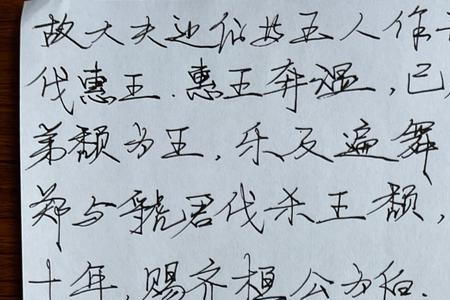 故大夫边伯等五人作
伐惠王.惠王奔温,已
弟颓为王,乐及遍舞
郑与虢君伐杀王颓,
十年,赐齐桓公为伯.